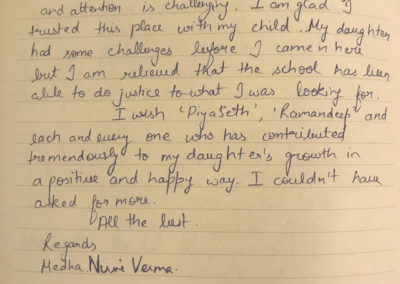 and attention is challenging. I am glad I
trusted this place with my child. My daughter
had some challenges before I came in here
but I am relieved that the school has been
able to do justice to what I was looking for.
I wish 'Piya Seth', 'Ramandeep' and
each and every one who has contributed
tremendously to my daughter's growth in
a positive and happy way. I couldn't have
asked for more.
All the best.
Regards
Medha Verma.